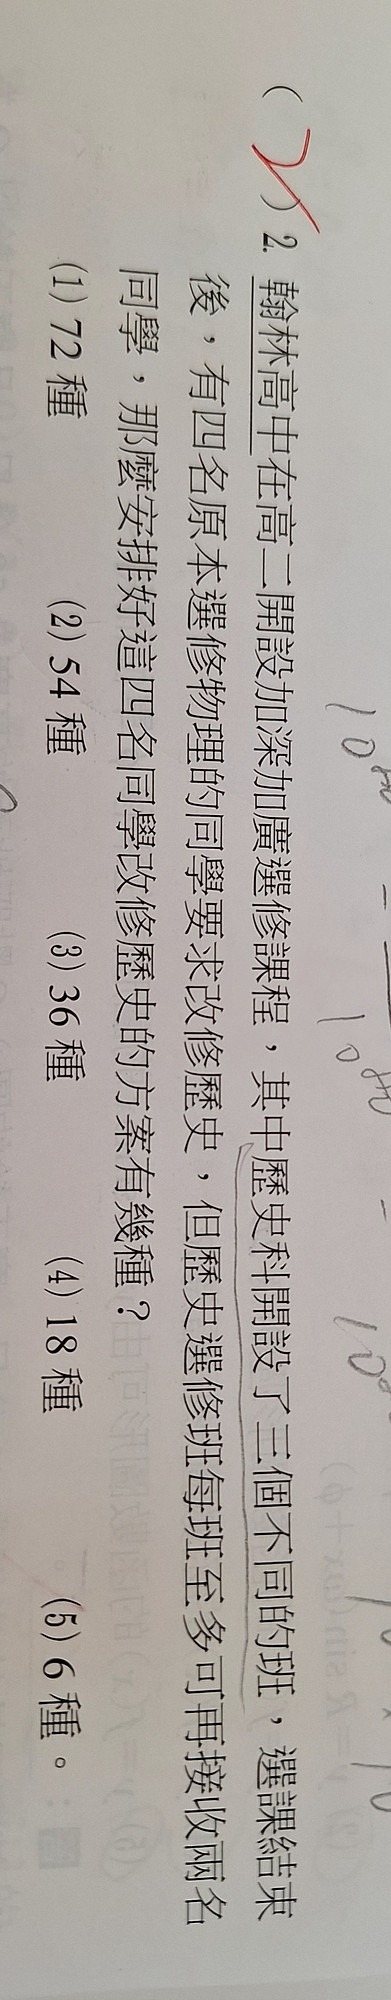 ( )2. 翰林高中在高二開設加深加廣選修課程，其中歷史科開設了三個不同的班，選課結束
後，有四名原本選修物理的同學要求改修歷史，但歷史選修班每班至多可再接收兩名
同學，那麼安排好這四名同學改修歷史的方案有幾種？
(1) 72 種 (2) 54 種 (3) 36 種 (4) 18 種 (5) 6 種。